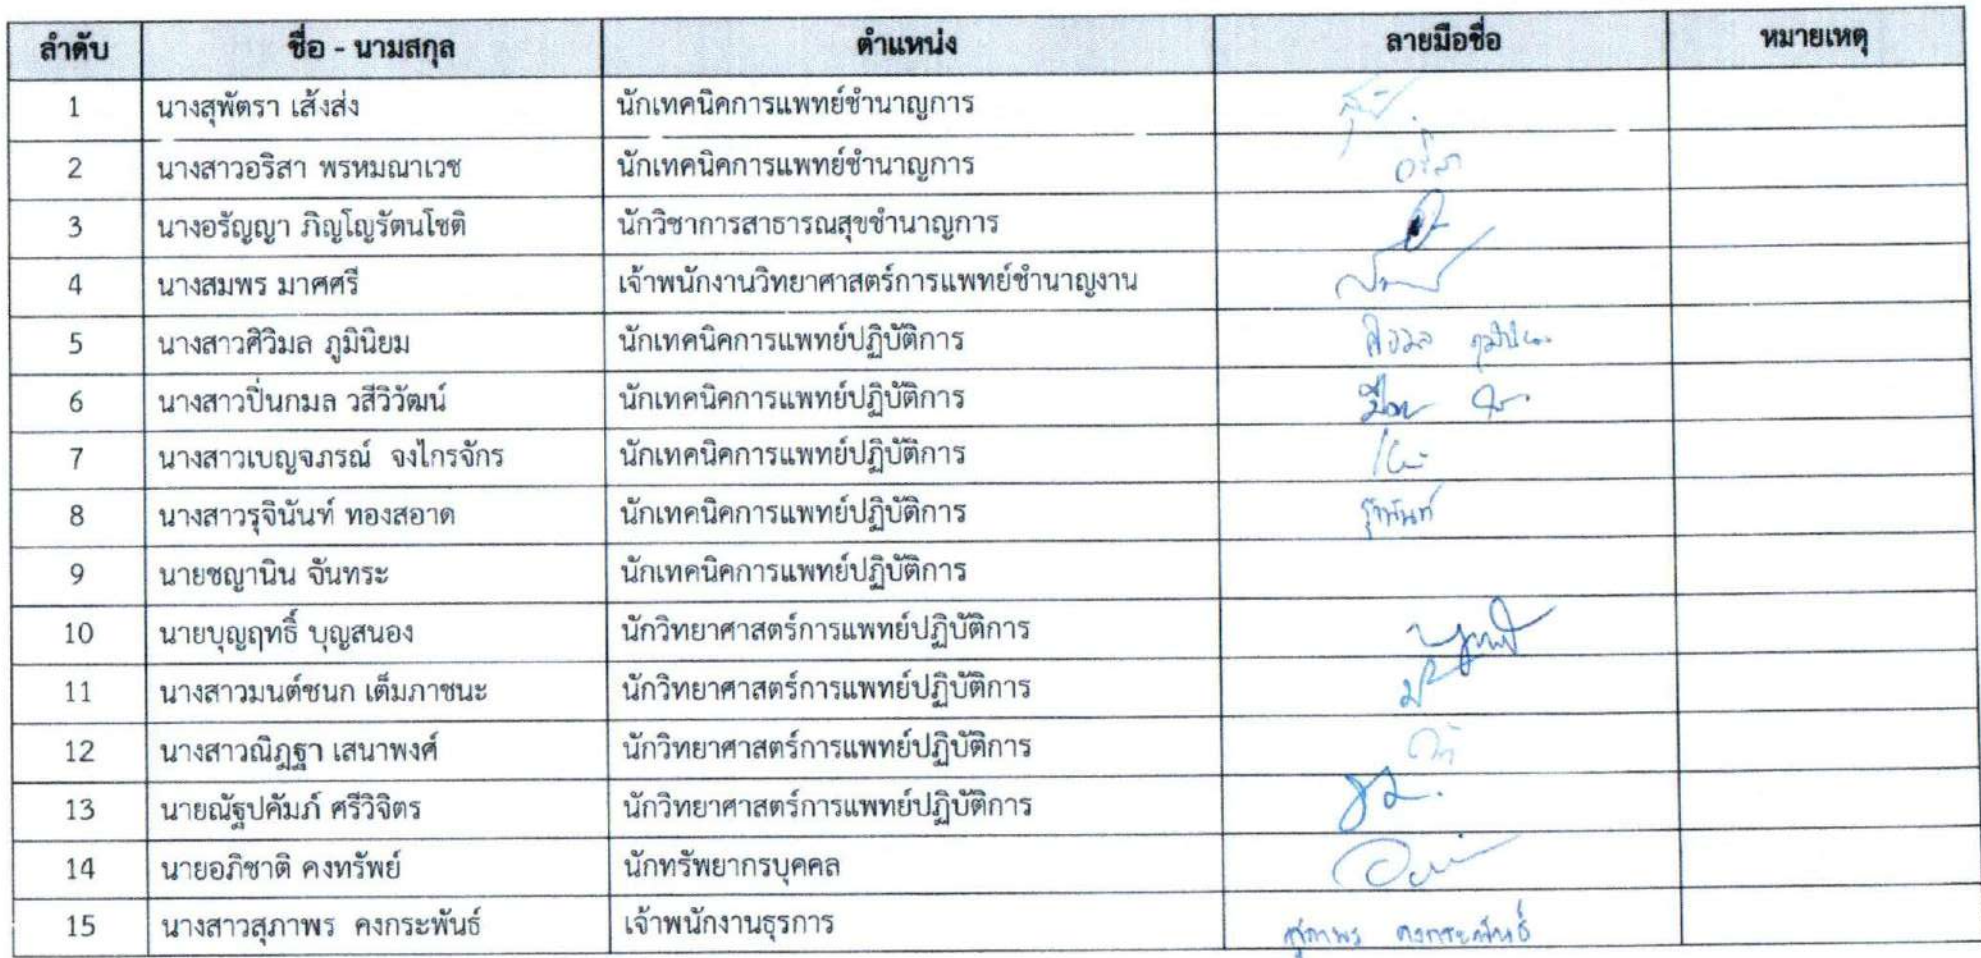 ลำดับ ชื่อ - นามสกุล ตำแหน่ง ลายมือชื่อ หมายเหตุ
1 นางสุพัตรา เส้งส่ง นักเทคนิคการแพทย์ชำนาญการ
2 นางสาวอริสา พรหมณาเวช นักเทคนิคการแพทย์ชำนาญการ อริสา
3 นางอรัญญา ภิญโญรัตนโชติ นักวิชาการสาธารณสุขชำนาญการ
4 นางสมพร มาศศรี เจ้าพนักงานวิทยาศาสตร์การแพทย์ชำนาญงาน
5 นางสาวศิวิมล ภูมินิยม นักเทคนิคการแพทย์ปฏิบัติการ
6 นางสาวปิ่นกมล วสีวิวัฒน์ นักเทคนิคการแพทย์ปฏิบัติการ
7 นางสาวเบญจภรณ์ จงไกรจักร นักเทคนิคการแพทย์ปฏิบัติการ
8 นางสาวรุจินันท์ ทองสอาด นักเทคนิคการแพทย์ปฏิบัติการ รุจินันท์
9 นายชญานิน จันทระ นักเทคนิคการแพทย์ปฏิบัติการ
10 นายบุญฤทธิ์ บุญสนอง นักวิทยาศาสตร์การแพทย์ปฏิบัติการ
11 นางสาวมนต์ชนก เต็มภาชนะ นักวิทยาศาสตร์การแพทย์ปฏิบัติการ
12 นางสาวณิฎฐา เสนาพงศ์ นักวิทยาศาสตร์การแพทย์ปฏิบัติการ
13 นายณัฐปคัมภ์ ศรีวิจิตร นักวิทยาศาสตร์การแพทย์ปฏิบัติการ
14 นายอภิชาติ คงทรัพย์ นักทรัพยากรบุคคล
15 นางสาวสุภาพร คงกระพันธ์ เจ้าพนักงานธุรการ สุภาพร คงกระพันธ์